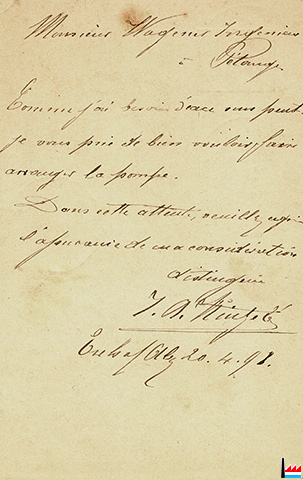 Monsieur Wagener Ingénieur
à Pétange
Comme j'ai besoin d'eau sous peu
je vous prie de bien vouloir faire
arranger la pompe.
Dans cette attente, veuillez agréer
l'assurance de ma considération
distinguée
Esch s/Alz 20.4.98.